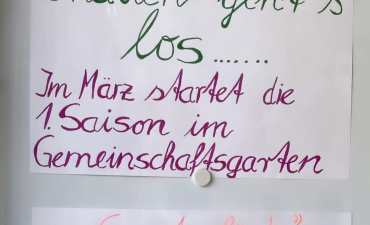 geht's
los.......
Im März startet die
1. Saison im
Gemeinschaftsgarten